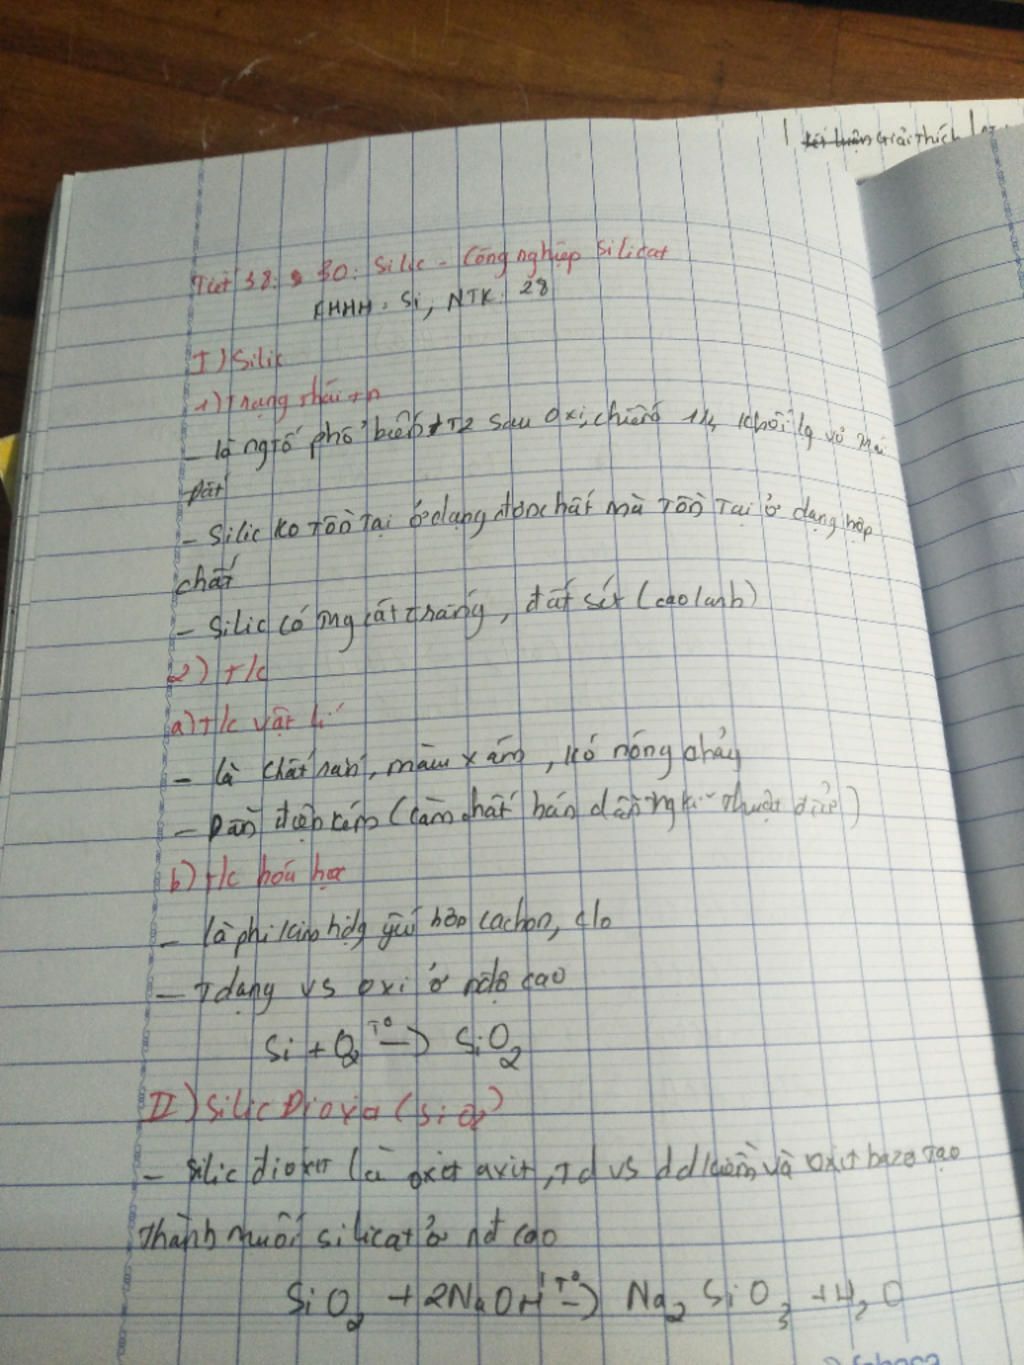 Giải thích
Tiết 38: 30: Silic - Công nghiệp Silicat
KHHH: Si, NTK: 28
I) Silic
1) Trạng thái tn
- là ngtố phổ biến T2 sau oxi, chiếm 1/4 khối lg vỏ trái
Đất
- Silic ko Tồn Tại ở dạng đơn chất mà Tồn Tại ở dạng hợp
chất
- Silic có Tng cát trắng, đất sét (cao lanh)
2) t/c
a) t/c vật lí
- là chất rắn, màu xám, khó nóng chảy
- Dẫn điện kém (làm chất bán dẫn Tng kĩ Thuật điện)
b) t/c hoá học
- là phi kim hđg yếu hơn cacbon, clo
- T dụng vs oxi ở nđộ cao
Si + O2 T° → SiO2
II) Silic Dioxit (SiO2)
- Silic đioxit là oxit axit, Td vs dd kiềm và oxit bazơ Tạo
Thành muối silicat ở nđ cao
SiO2 + 2NaOH T° → Na2SiO3 + H2O